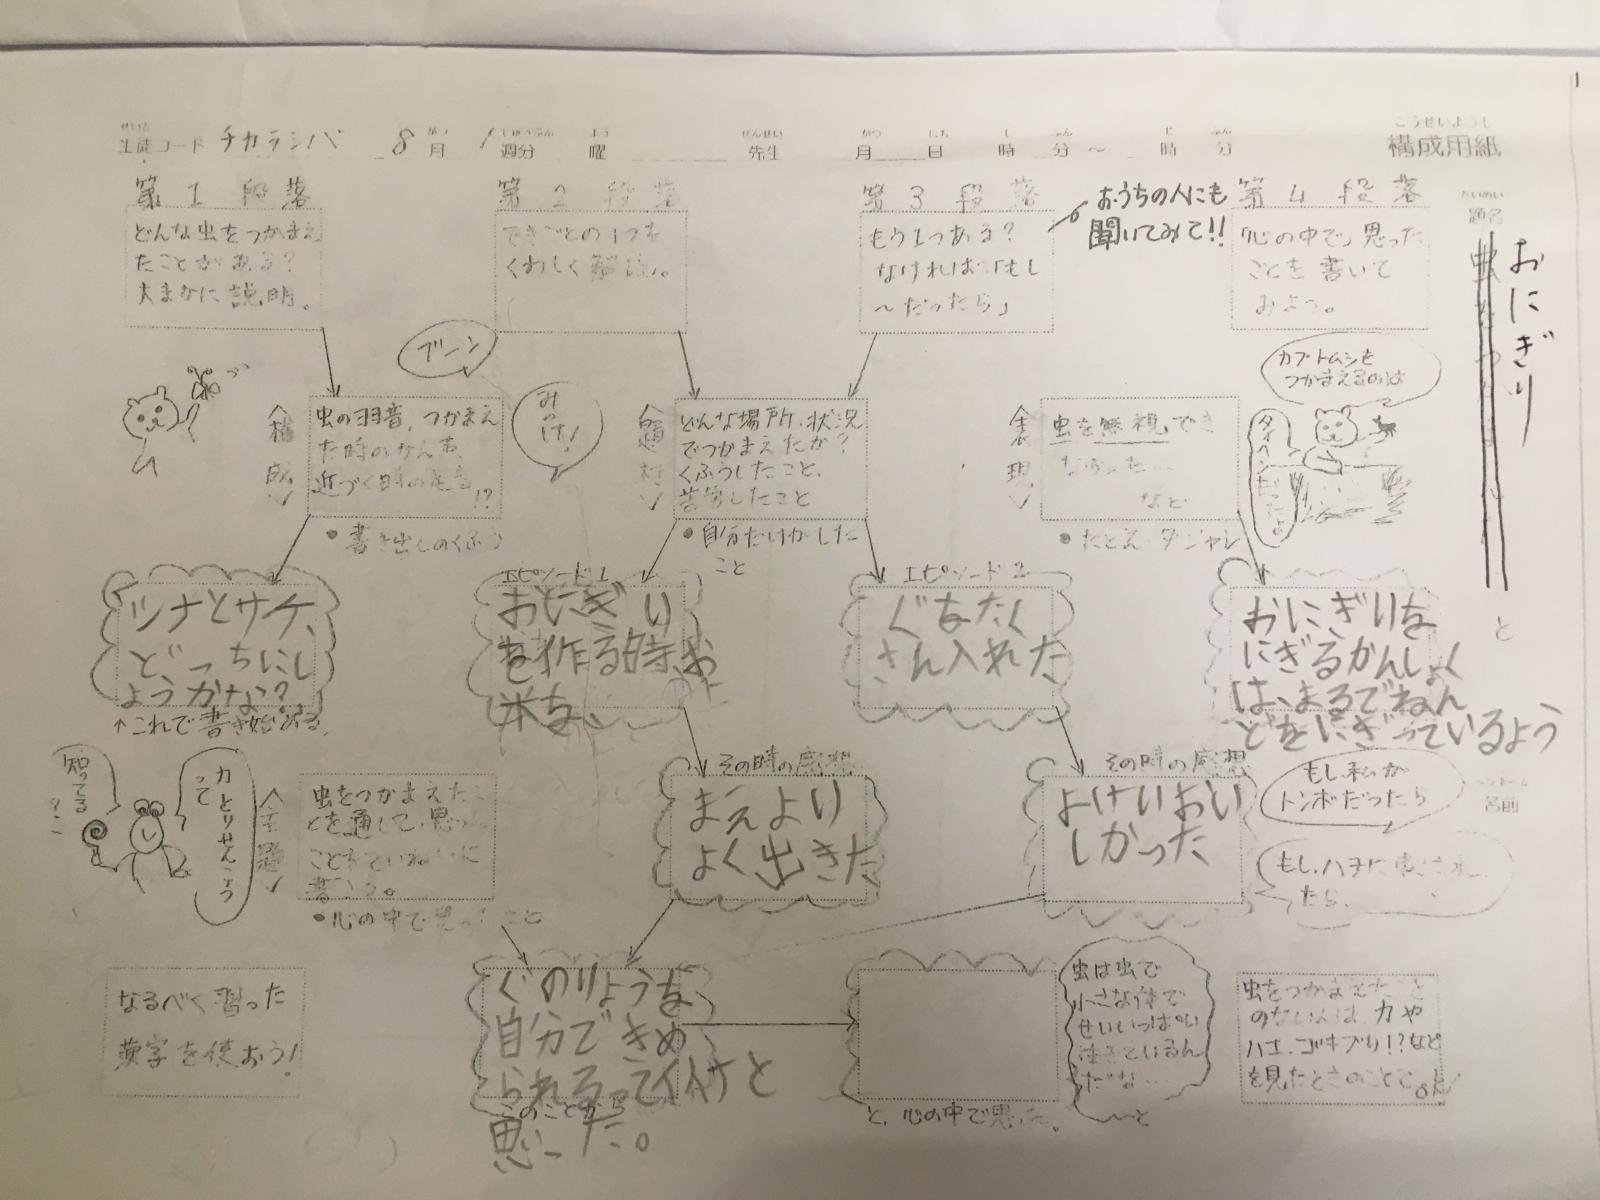 構成用紙
こうせいようし
生徒コード チカラシバ 8月 1週分 曜 先生 月 日 時 分 ～ 時 分
題名
おにぎり
と
第1段落
どんな虫をつかまえ
たことがある?
大まかに説明。
第2段落
できごとの1つを
くわしく
第3段落
もう1つある?
なければ「もし
～だったら」
おうちの人にも
聞いてみて!!
第4段落
「心の中で」思った
ことを書いて
みよう。
ブーン
虫の羽音、つかまえ
た時の
近づく時の足音!?
・書き出しのくふう
どんな場所、状況
でつかまえたか?
くふうしたこと、
苦労したこと
・自分だけがした
こと
〈表現〉
虫を無視でき
なかった…
など
・たとえ・ダジャレ
カブトムシを
つかまえるのは
タイヘンだったよ
ツナとサケ、
どっちにし
ようかな?
↑これで書き始める。
エピソード1
おにぎり
を作る時、お
米を、
エピソード2
ぐをたく
さん入れた
おにぎりを
にぎるかんしょく
は、まるでねん
どをにぎっているよう
知ってる
?
カとりせんこう
って
〈主題〉
虫をつかまえたこ
とを通して、思った
ことをていねいに
書こう。
・心の中で思ったこと
その時の感想
まえより
よく出きた
その時の感想
よけいおい
しかった
もし、私が
トンボだったら
もし、ハチに
たら、
名前
なるべく習った
漢字を使おう!
ぐのりょうを
自分できめ
られるってイイナと
思った。
このことから
と、心の中で思った。
虫は虫で
小さな体で
せいいっぱい
生きているん
だな…
と
虫をつかまえたこと
のない人は、カや
ハエ、ゴキブリ!?など
を見たときのことで